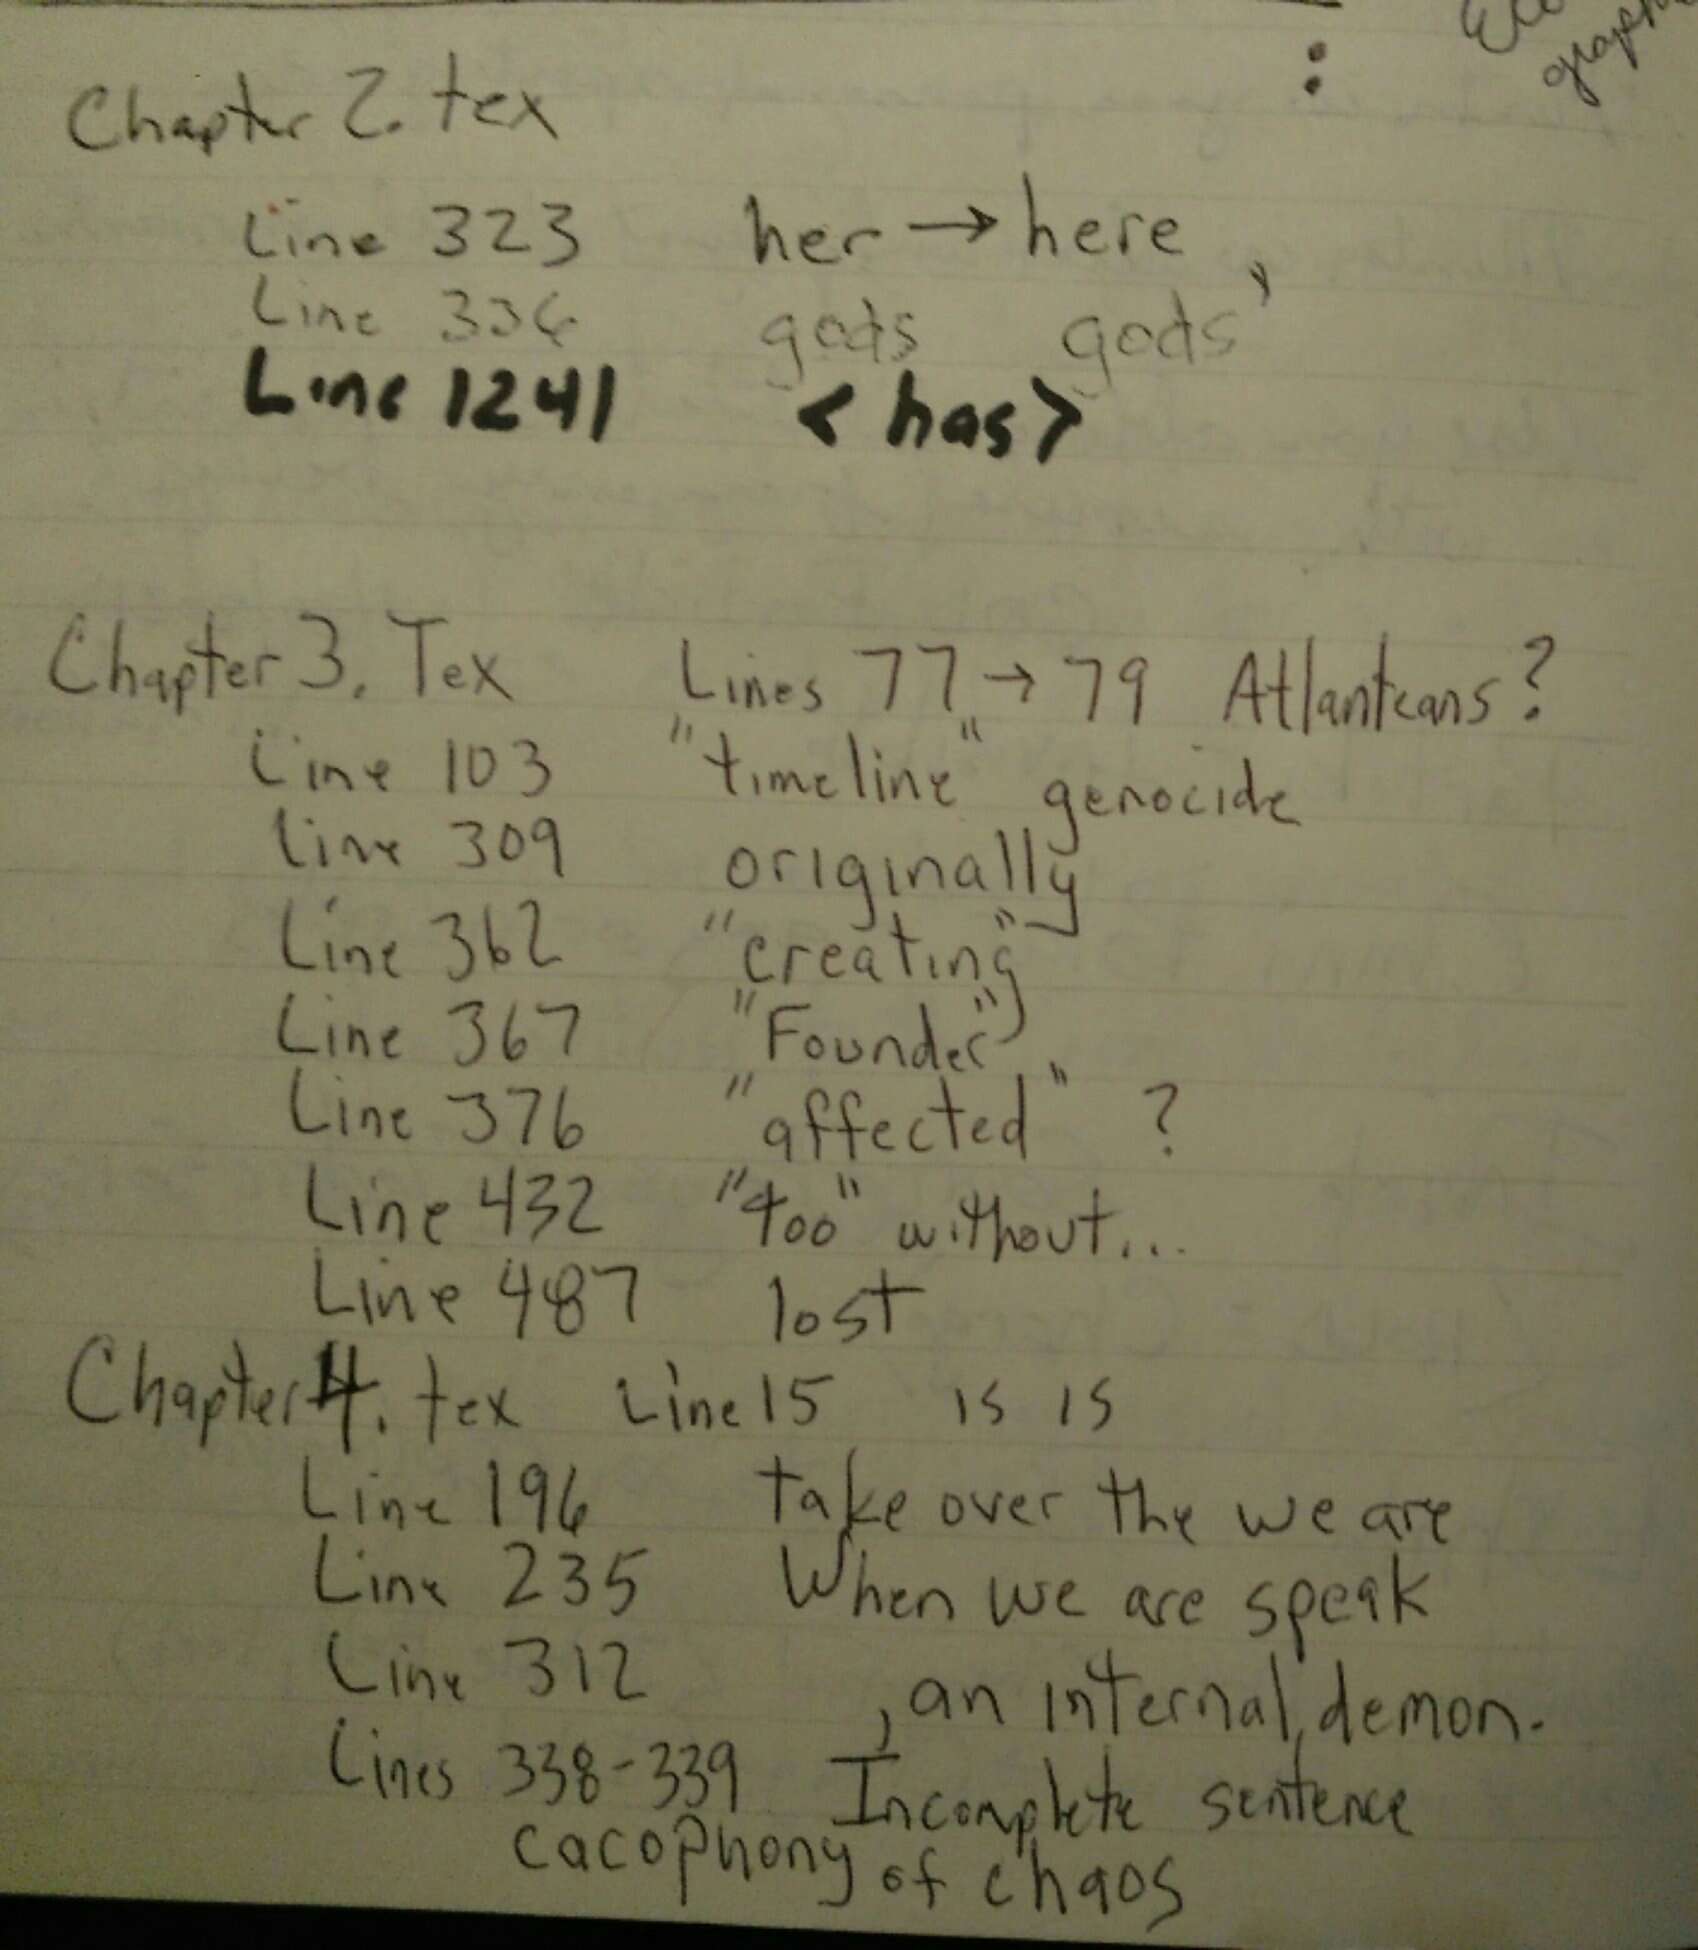 :
Chapter 2. tex
Line 323 her → here
Line 336 gods gods'
Line 1241 < has >
Chapter 3. Tex Lines 77 → 79 Atlanteans?
Line 103 "timeline" genocide
Line 309 originally
Line 362 "creating"
Line 367 "Founder"
Line 376 "affected" ?
Line 432 "too" without...
Line 487 lost
Chapter 4. tex Line 15 is is
Line 196 take over the we are
Line 235 When we are speak
Line 312 , an internal, demon.
Lines 338-339 Incomplete sentence
cacophony of chaos